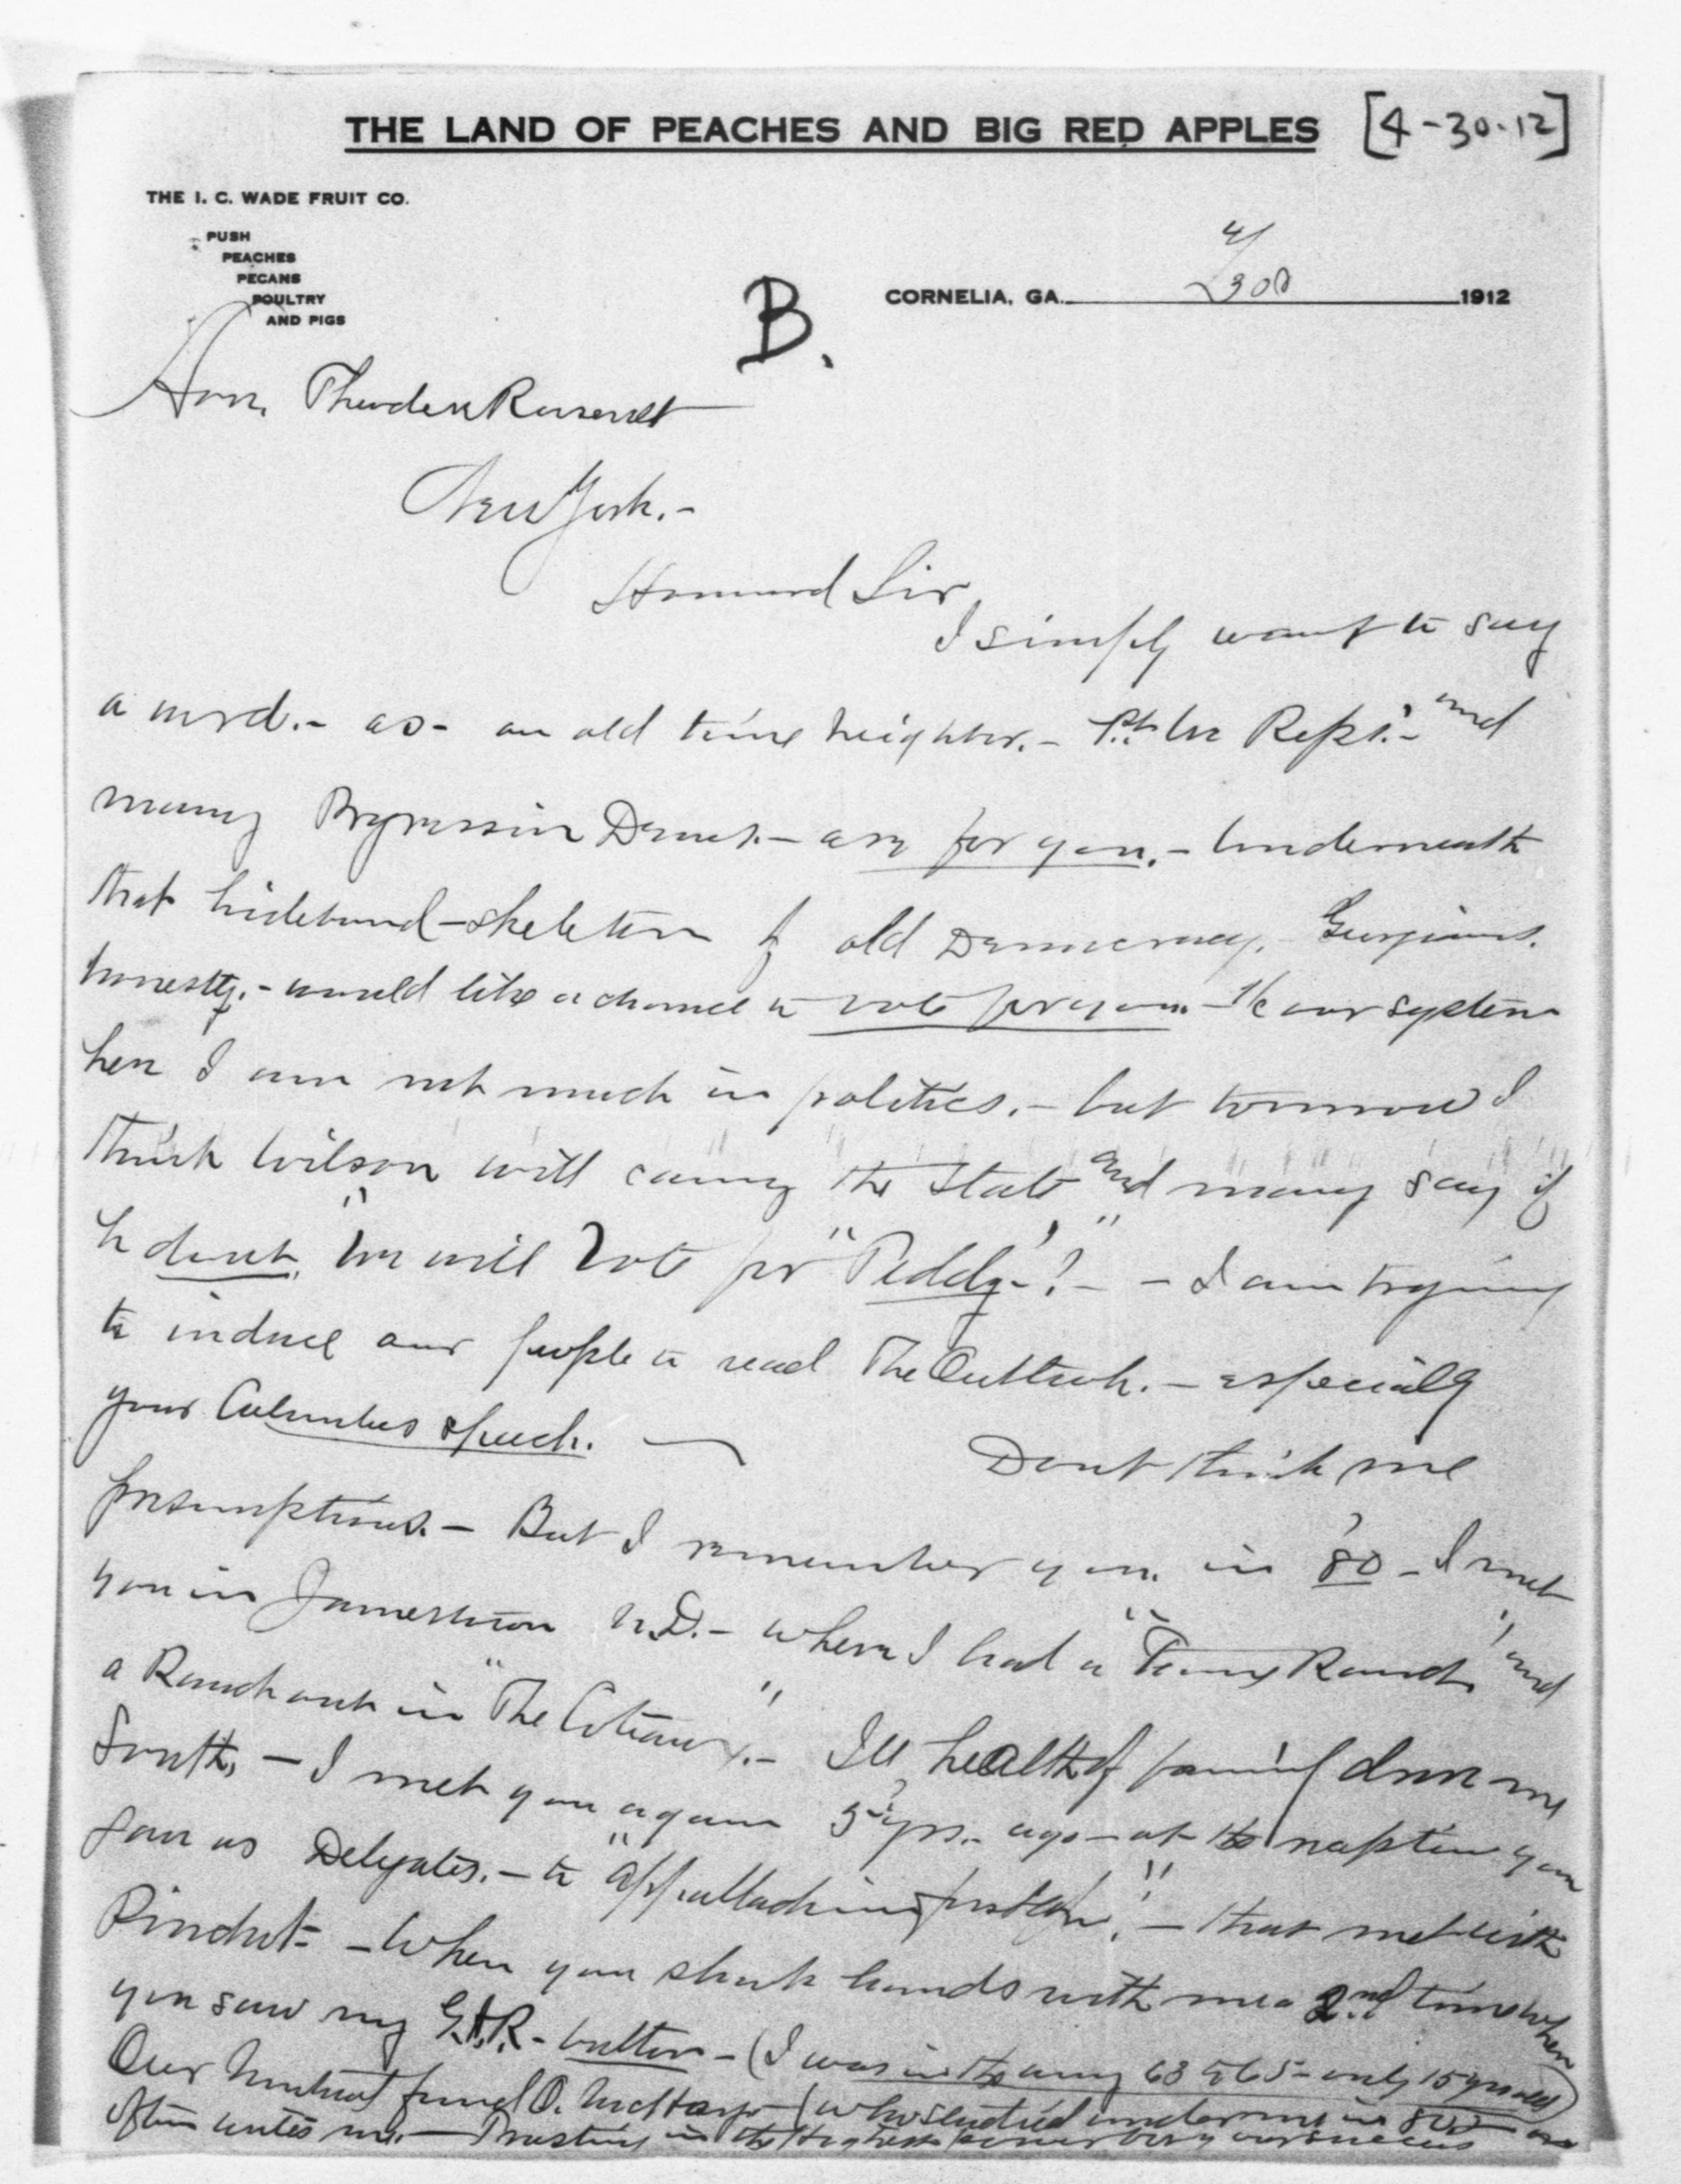 THE LAND OF PEACHES AND BIG RED APPLES [4-30-12]
THE I. C. WADE FRUIT CO.
PUSH
PEACHES
PECANS
POULTRY
AND PIGS
B.
4/30
CORNELIA, GA. 1912
Hon. Theodore Roosevelt
New York.-
Honored Sir,
I simply want to say
a word.- as- an old time neighbor.- the Repts.- and
many Progressive Demos.- are for you.- Underneath
that hidebound-skeleton of old Democracy.- Georgians.
honestly.- would like a chance to vote for you. - our system
here I am not much in politics.- but tomorrow I
think Wilson will carry the State and many say if
he dont, "we will vote for "Teddy"!- - I am trying
to induce our people to read The Outlook.- especially
your Columbus speech.
Dont think me
presumptious.- But I remember you in '80 - I met
you in Jamestown N.D.- where I had a "Ranch" and
a Ranch out in "The Coteaux".- Ill health of family drove me
South, - I met you again 5 yrs. ago - at the reception you
gave us Delegates.- to "Appallachian" - that met with
Pinchot - When you shook hands with me a 2nd time when
you saw my G.A.R.- button - (I was in the army 63 to 65 - only 15 yrs old)
Our Mutual friend O. (who studied under me in 80s
often writes me.- Trusting in the Highest for your success